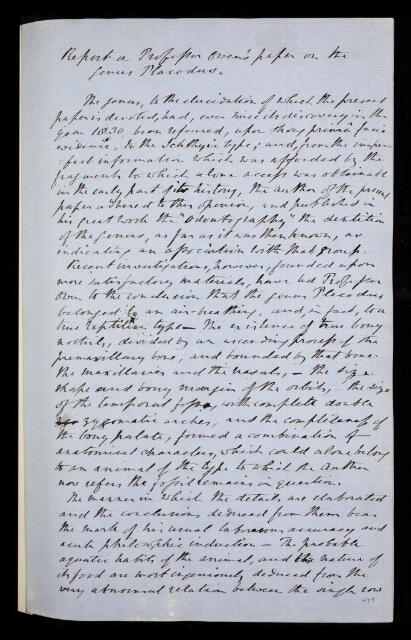 Report on Professor Owen's paper on the
genus Placodus.
The genus, to the elucidation of which the present
paper is devoted, had, ever since its discovery in the
year 1830, been referred, upon strong primâ facie
evidence, to the Ichthyic type; and, from the imper-
-fect information which was afforded by the
fragments to which alone access was obtainable
in the early part of its history, the author of the present
paper adhered to this opinion, and published in
his great work the "Odontography" the dentition
of the genus, as far as it was then known, as
indicating an association with that group.
Recent investigations, however, founded upon
more satisfactory materials, have led Professor
Owen to the conclusion that the genus Placodus
belonged to an air-breathing, and, in fact, to a
true reptilian type— The existence of true bony
nostrils, divided by an ascending process of the
premaxillary bone, and bounded by that bone,
the maxillaries and the nasals, – the size
shape and bony margin of the orbits, the size
of the temporal fossæ, with complete double
zygomatic arches, and the completeness of
the bony palate, formed a combination of
anatomical characters, which could alone belong
to an animal of the type to which the Author
now refers the fossil remains in question.
The manner in which the details are elaborated
and the conclusions deduced from them bear
the mark of his usual laborious accuracy and
acute philosophic induction – The probable
aquatic habits of the animal, and the nature of
its food are most ingeniously deduced from the
very abnormal relation between the single row